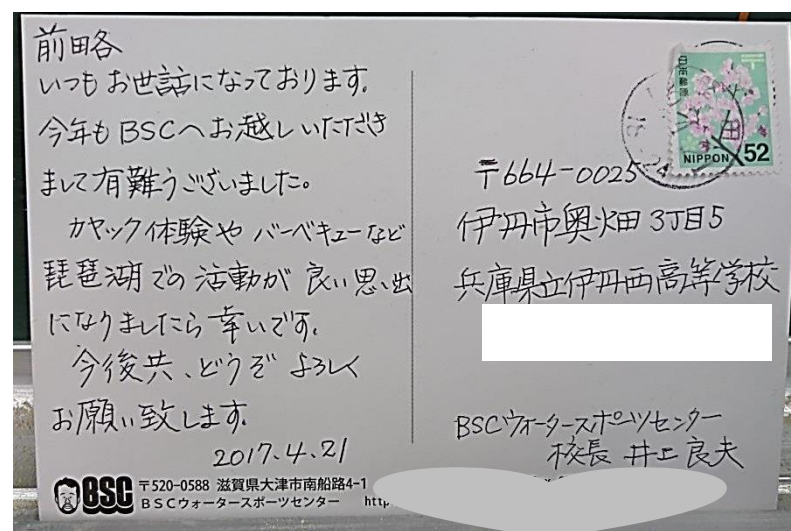 前田各
いつもお世話になっております。
今年もBSCへお越しいただき
まして有難うございました。
カヤック体験やバーベキューなど
琵琶湖での活動が良い思い出
になりましたら幸いです。
今後共、どうぞよろしく
お願い致します。
2017.4.21
BSC
〒520-0588 滋賀県大津市南船路4-1
BSCウォータースポーツセンター http:
日本郵便
NIPPON 52
〒664-0025
伊丹市奥畑3丁目5
兵庫県立伊丹西高等学校
BSCウォータースポーツセンター
校長 井上良夫